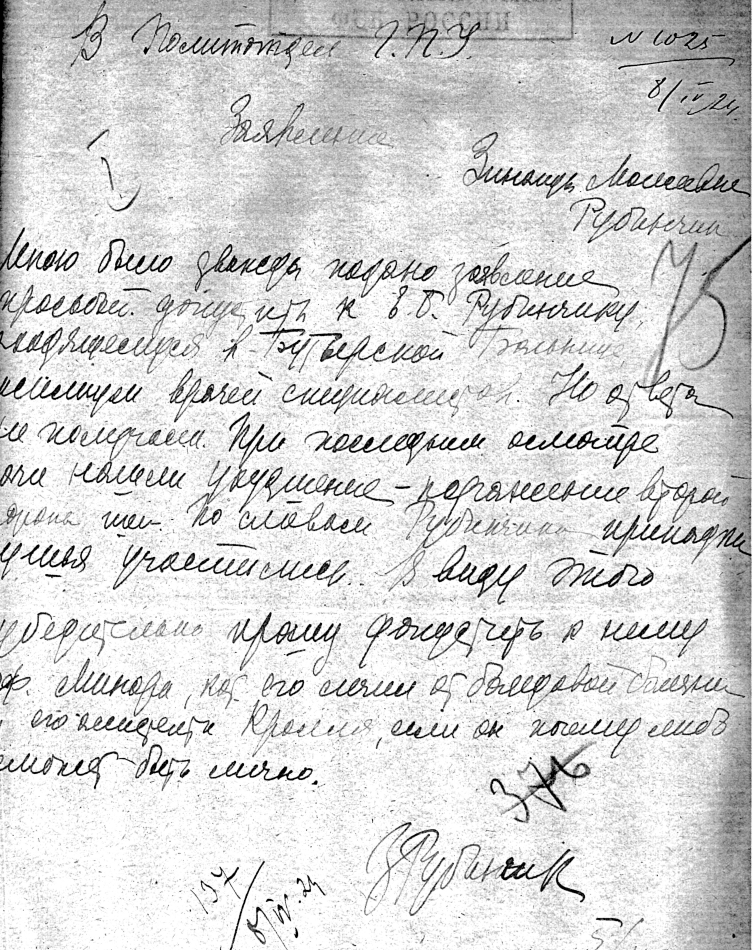 ФСБ РОССИИ
В Политотдел Г.П.У.
N 1025
8/IV 24.
Заявление
Зинаиды Моисеевны
Рубинчик
75
Мною было дважды подано заявление
просьбой допустить к Е.Б. Рубинчику,
находящемуся в Бутырской Больнице,
врачей специалистов. Но ответа
не получила. При последнем осмотре
врачи нашли ухудшение – поражение второй
стороны тела. По словам Рубинчика припадки
удушья участились. В виду этого
убедительно прошу допустить к нему
проф. Минора, кот его лечил от болезни
его ассистента Кролля, если он почему либо
не может быть лично.
376
ЗРубинчик
137/8/IV 24
51